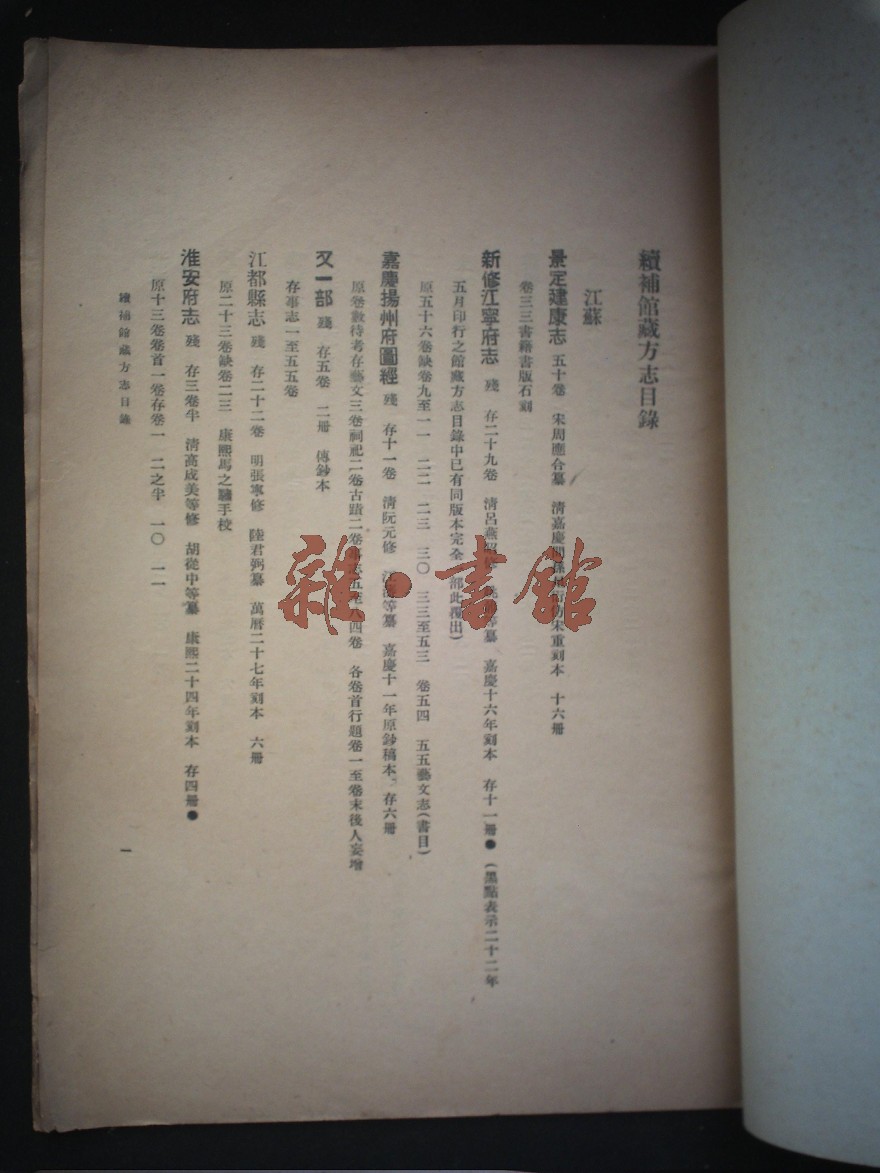 續補館藏方志目錄
江蘇
景定建康志 五十卷 宋周應合纂 清嘉慶間 宋重刻本 十六册
卷三三書籍書版石刻
新修江寧府志 殘 存二十九卷 清呂燕 等纂 嘉慶十六年刻本 存十一册● (黑點表示二十二年
五月印行之館藏方志目錄中已有同版本完全 部此獨出)
原五十六卷缺卷九至一一 二二 二三 三〇 三三至五三 卷五四 五五藝文志(書目)
嘉慶揚州府圖經 殘 存十一卷 清阮元修 江 等纂 嘉慶十一年原鈔稿本 存六册
原卷數待考存藝文三卷祠祀二卷古蹟二卷 四卷 各卷首行題卷一至卷末後人妄增
又一部 殘 存五卷 二册 傳鈔本
存事志一至五五卷
江都縣志 殘 存二十二卷 明張寧修 陸君弼纂 萬曆二十七年刻本 六册
原二十三卷缺卷二三 康熙馬之驌手校
淮安府志 殘 存三卷半 清高成美等修 胡從中等纂 康熙二十四年刻本 存四册●
原十三卷卷首一卷存卷一 二之半 一〇 一一
續補館藏方志目錄
一
雜·書館